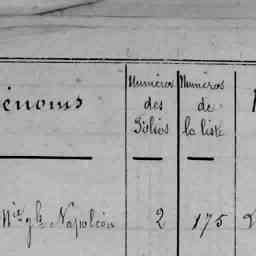 énoms
Numéros des Folios
Numéros de la liste
Napoléon 2 175